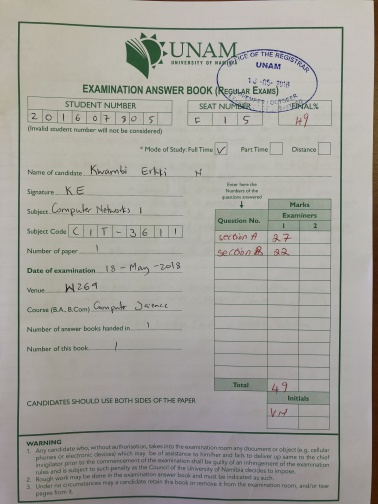 UNAM
UNIVERSITY OF NAMIBIA
OFFICE OF THE REGISTRAR
UNAM
EXAMINATION ANSWER BOOK (REGULAR EXAMS)
STUDENT NUMBER SEAT NUMBER FINAL%
201607805 F 15 49
(Invalid student number will not be considered)
* Mode of Study: Full Time ✓ Part Time Distance
Name of candidate Kwambi N
Signature KE
Enter here the Numbers of the questions answered
Marks
Subject Computer Networks 1
Question No. Examiners
1 2
Subject Code CIT-3611
section A 27
section B 22
Number of paper 1
Date of examination 18-May-2018
Venue W269
Course (B.A., B.Com) Computer Science
Number of answer books handed in 1
Number of this book 1
Total 49
CANDIDATES SHOULD USE BOTH SIDES OF THE PAPER
Initials
VN
WARNING
1. Any candidate who, without authorisation, takes into the examination room any document or object (e.g. cellular
phones or electronic devices) which may be of assistance to him/her and fails to deliver up same to the chief
invigilator prior to the commencement of the examination shall be guilty of an infringement of the examination
rules and is subject to such penalty as the Council of the University of Namibia decides to impose.
2. Rough work may be done in the examination answer book and must be indicated as such.
3. Under no circumstances may a candidate retain this book or remove it from the examination room, and/or tear
pages from it.